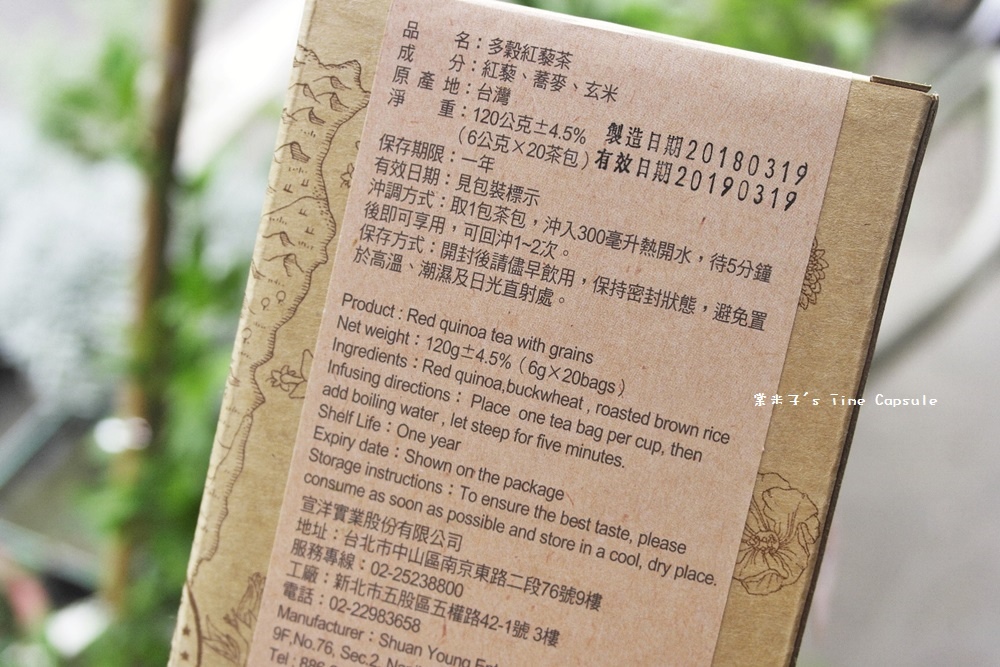 品名：多穀紅藜茶
成分：紅藜、蕎麥、玄米
原產地：台灣
淨重：120公克±4.5%
（6公克×20茶包）
製造日期20180319
有效日期20190319
保存期限：一年
有效日期：見包裝標示
沖調方式：取1包茶包，沖入300毫升熱開水，待5分鐘
後即可享用，可回沖1~2次。
保存方式：開封後請儘早飲用，保持密封狀態，避免置
於高溫、潮濕及日光直射處。
Product : Red quinoa tea with grains
Net weight : 120g±4.5%（6g×20bags）
Ingredients : Red quinoa,buckwheat , roasted brown rice
Infusing directions : Place one tea bag per cup, then
add boiling water , let steep for five minutes.
Shelf Life : One year
Expiry date : Shown on the package
Storage instructions : To ensure the best taste, please
consume as soon as possible and store in a cool, dry place.
宣洋實業股份有限公司
地址：台北市中山區南京東路二段76號9樓
服務專線：02-25238800
工廠：新北市五股區五權路42-1號 3樓
電話：02-22983658
Manufacturer : Shuan Young
9F,No.76, Sec.2,
Tel : 886
葉米子's Time Capsule